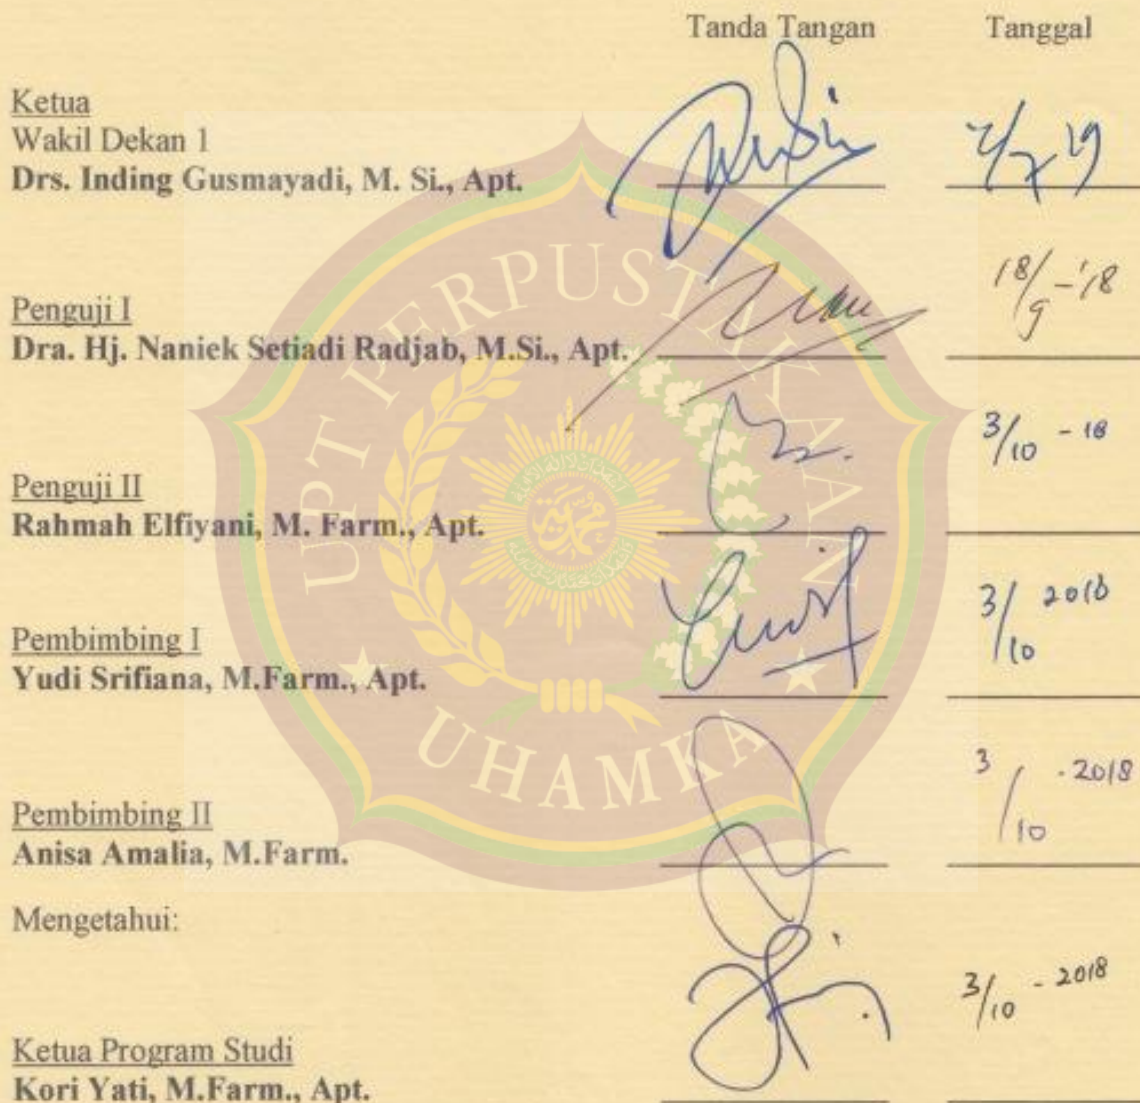 Tanda Tangan Tanggal
Ketua
Wakil Dekan 1
Drs. Inding Gusmayadi, M. Si., Apt. 2/7 19
Penguji I
Dra. Hj. Naniek Setiadi Radjab, M.Si., Apt. 18/9 -'18
Penguji II
Rahmah Elfiyani, M. Farm., Apt. 3/10 - 18
Pembimbing I
Yudi Srifiana, M.Farm., Apt. 3/10 2018
Pembimbing II
Anisa Amalia, M.Farm. 3/10 - 2018
Mengetahui:
Ketua Program Studi
Kori Yati, M.Farm., Apt. 3/10 - 2018
UPT PERPUSTAKAAN
UHAMKA